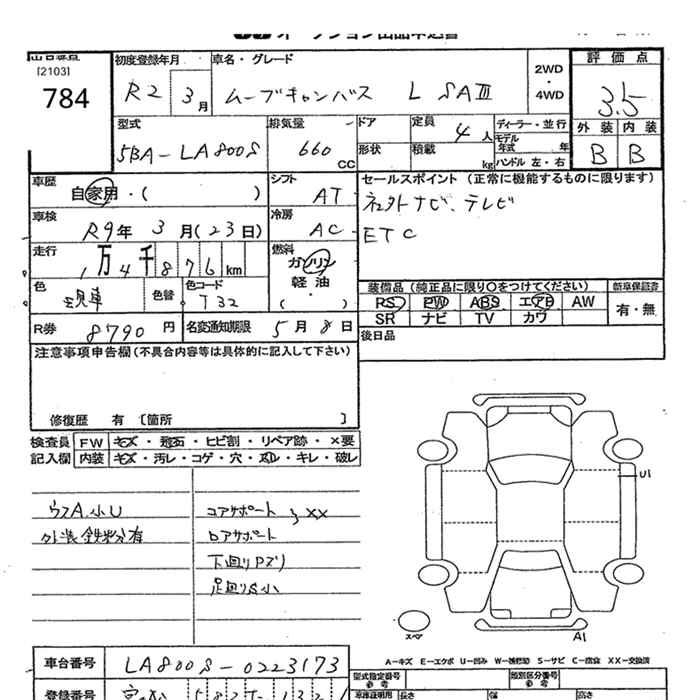 オークション出品申込書
出品番査
[2103]
784
初度登録年月
R2 3月
車名・グレード
ムーブキャンバス L SAⅢ
2WD
・
4WD
評価点
3.5
外装 内装
B B
型式
5BA-LA800S
排気量
660 CC
ドア
定員 4人
ディーラー・並行
モデル年式 年
形状
積載 kg
ハンドル 左・右
車歴
自家用・( )
シフト AT
セールスポイント (正常に機能するものに限ります)
社外ナビ、テレビ
ETC
車検
R9年 3月(23日)
冷房 AC
走行
1万4千876km
燃料
ガソリン
軽油
・
( )
色
現車
色替
色コード
T32
装備品 (純正品に限り○をつけてください)
新車保証書
PS PW ABS エアB AW
SR ナビ TV カワ
有・無
R券 8790円
名変通知期限 5月8日
後日品
注意事項申告欄(不具合内容等は具体的に記入して下さい)
修復歴 有 〔箇所 〕
検査員 FW キズ・飛石・ヒビ割・リペア跡・×要
記入欄 内装 キズ・汚レ・コゲ・穴・スレ・キレ・破レ
小U
外装鉄粉有
コアサポート
ロアサポート
XX
下廻りPズリ
足廻りS小
U1
A1
スペア
A-キズ E-エクボ U-凹み W-補修跡 S-サビ C-腐食 XX-交換済
車台番号 LA800S-0223173
型式指定番号
参考
類別区分番号
参考
登録番号
車庫証明用
長さ
幅
高さ